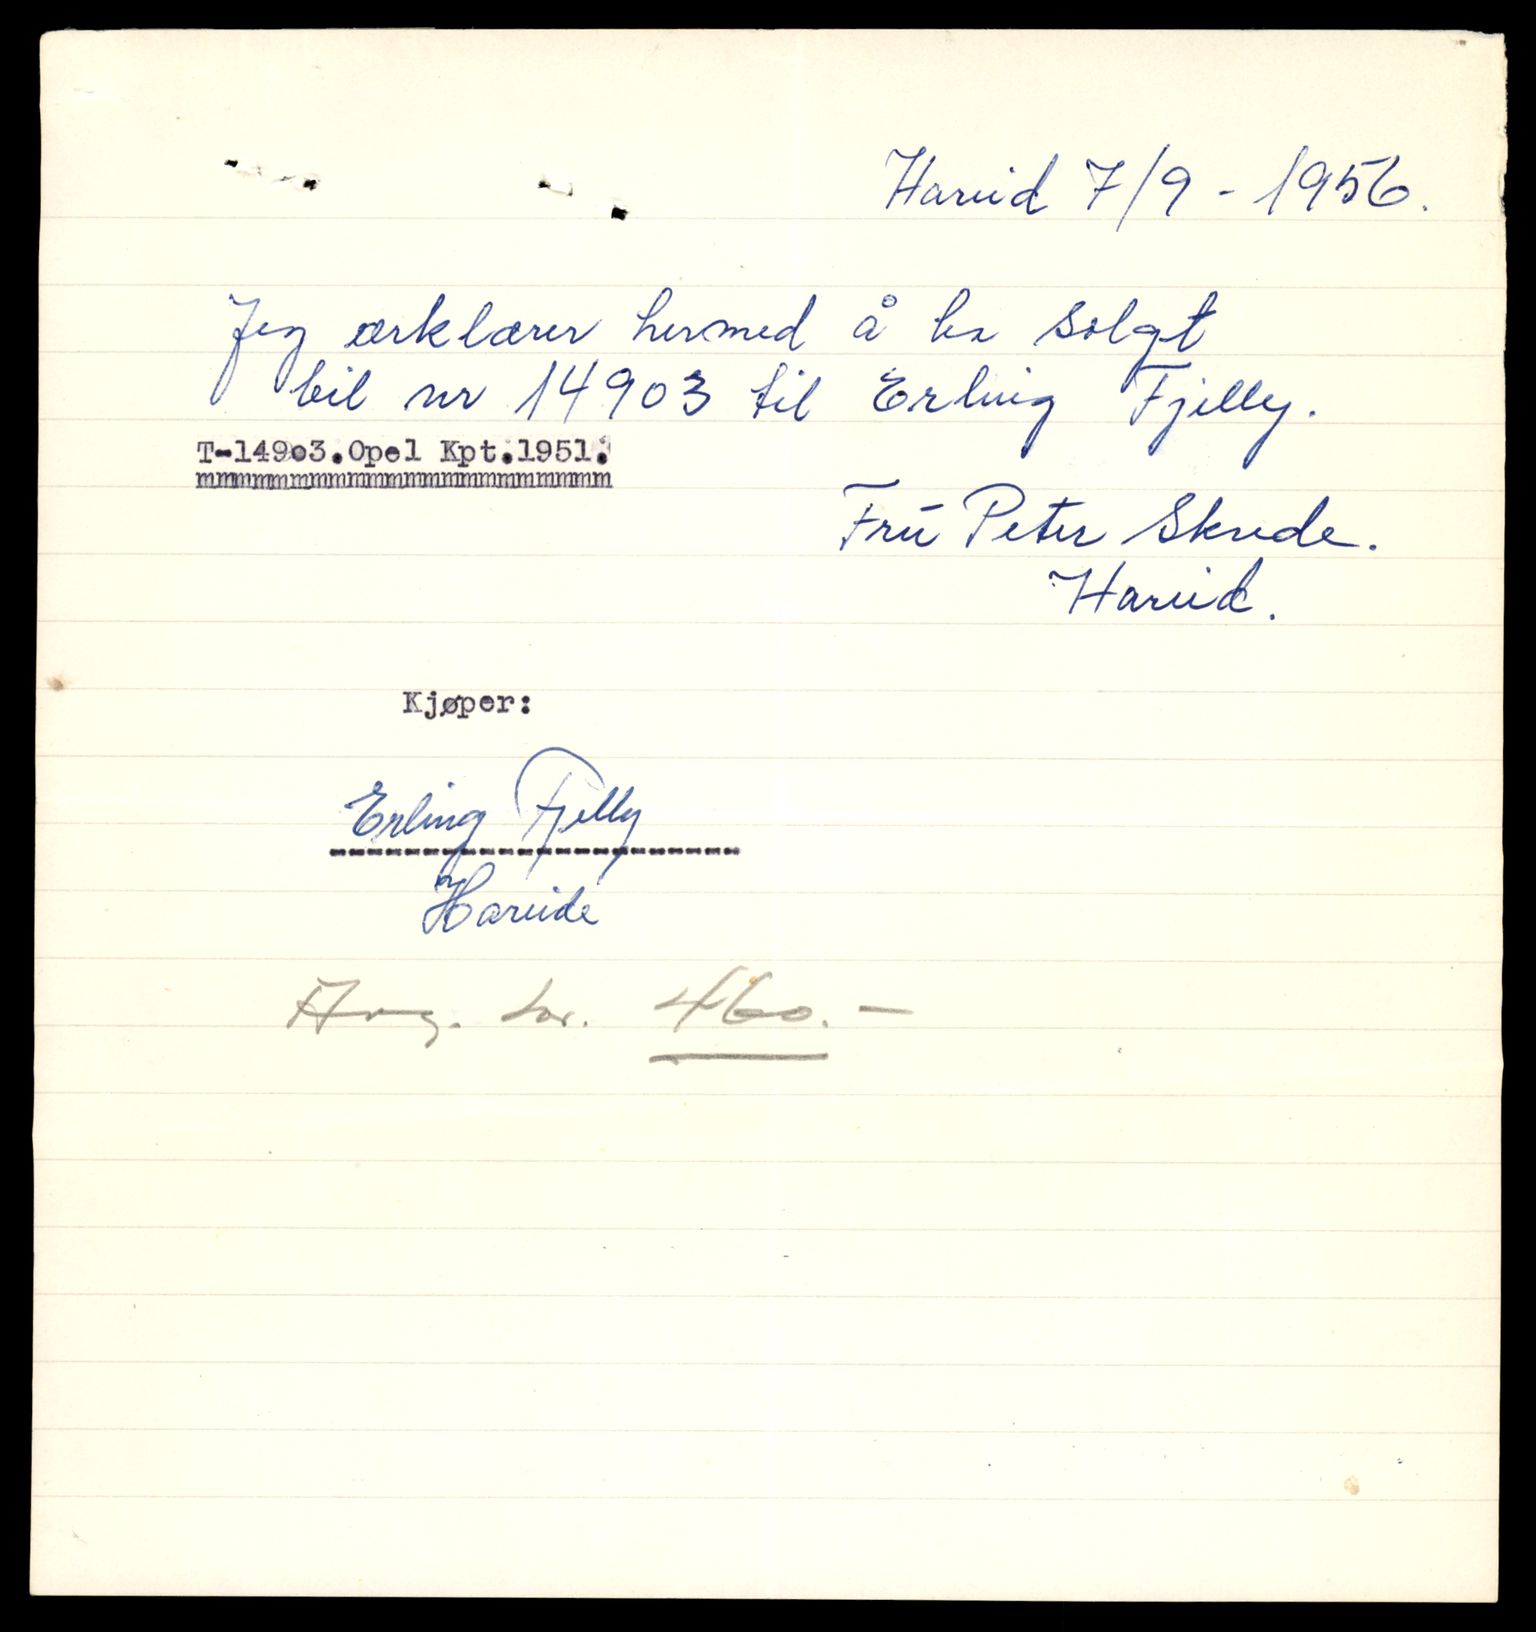 Hareid 7/9 - 1956.
Jeg ærklærer hermed å ha solgt
bil nr 14903 til Erling Fjelly.
T-14903.Opel Kpt.1951.
Frū Peter Skrede.
Hareid.
Kjøper:
Erling Fjelly
Hareide
Avg. kr. 460.-